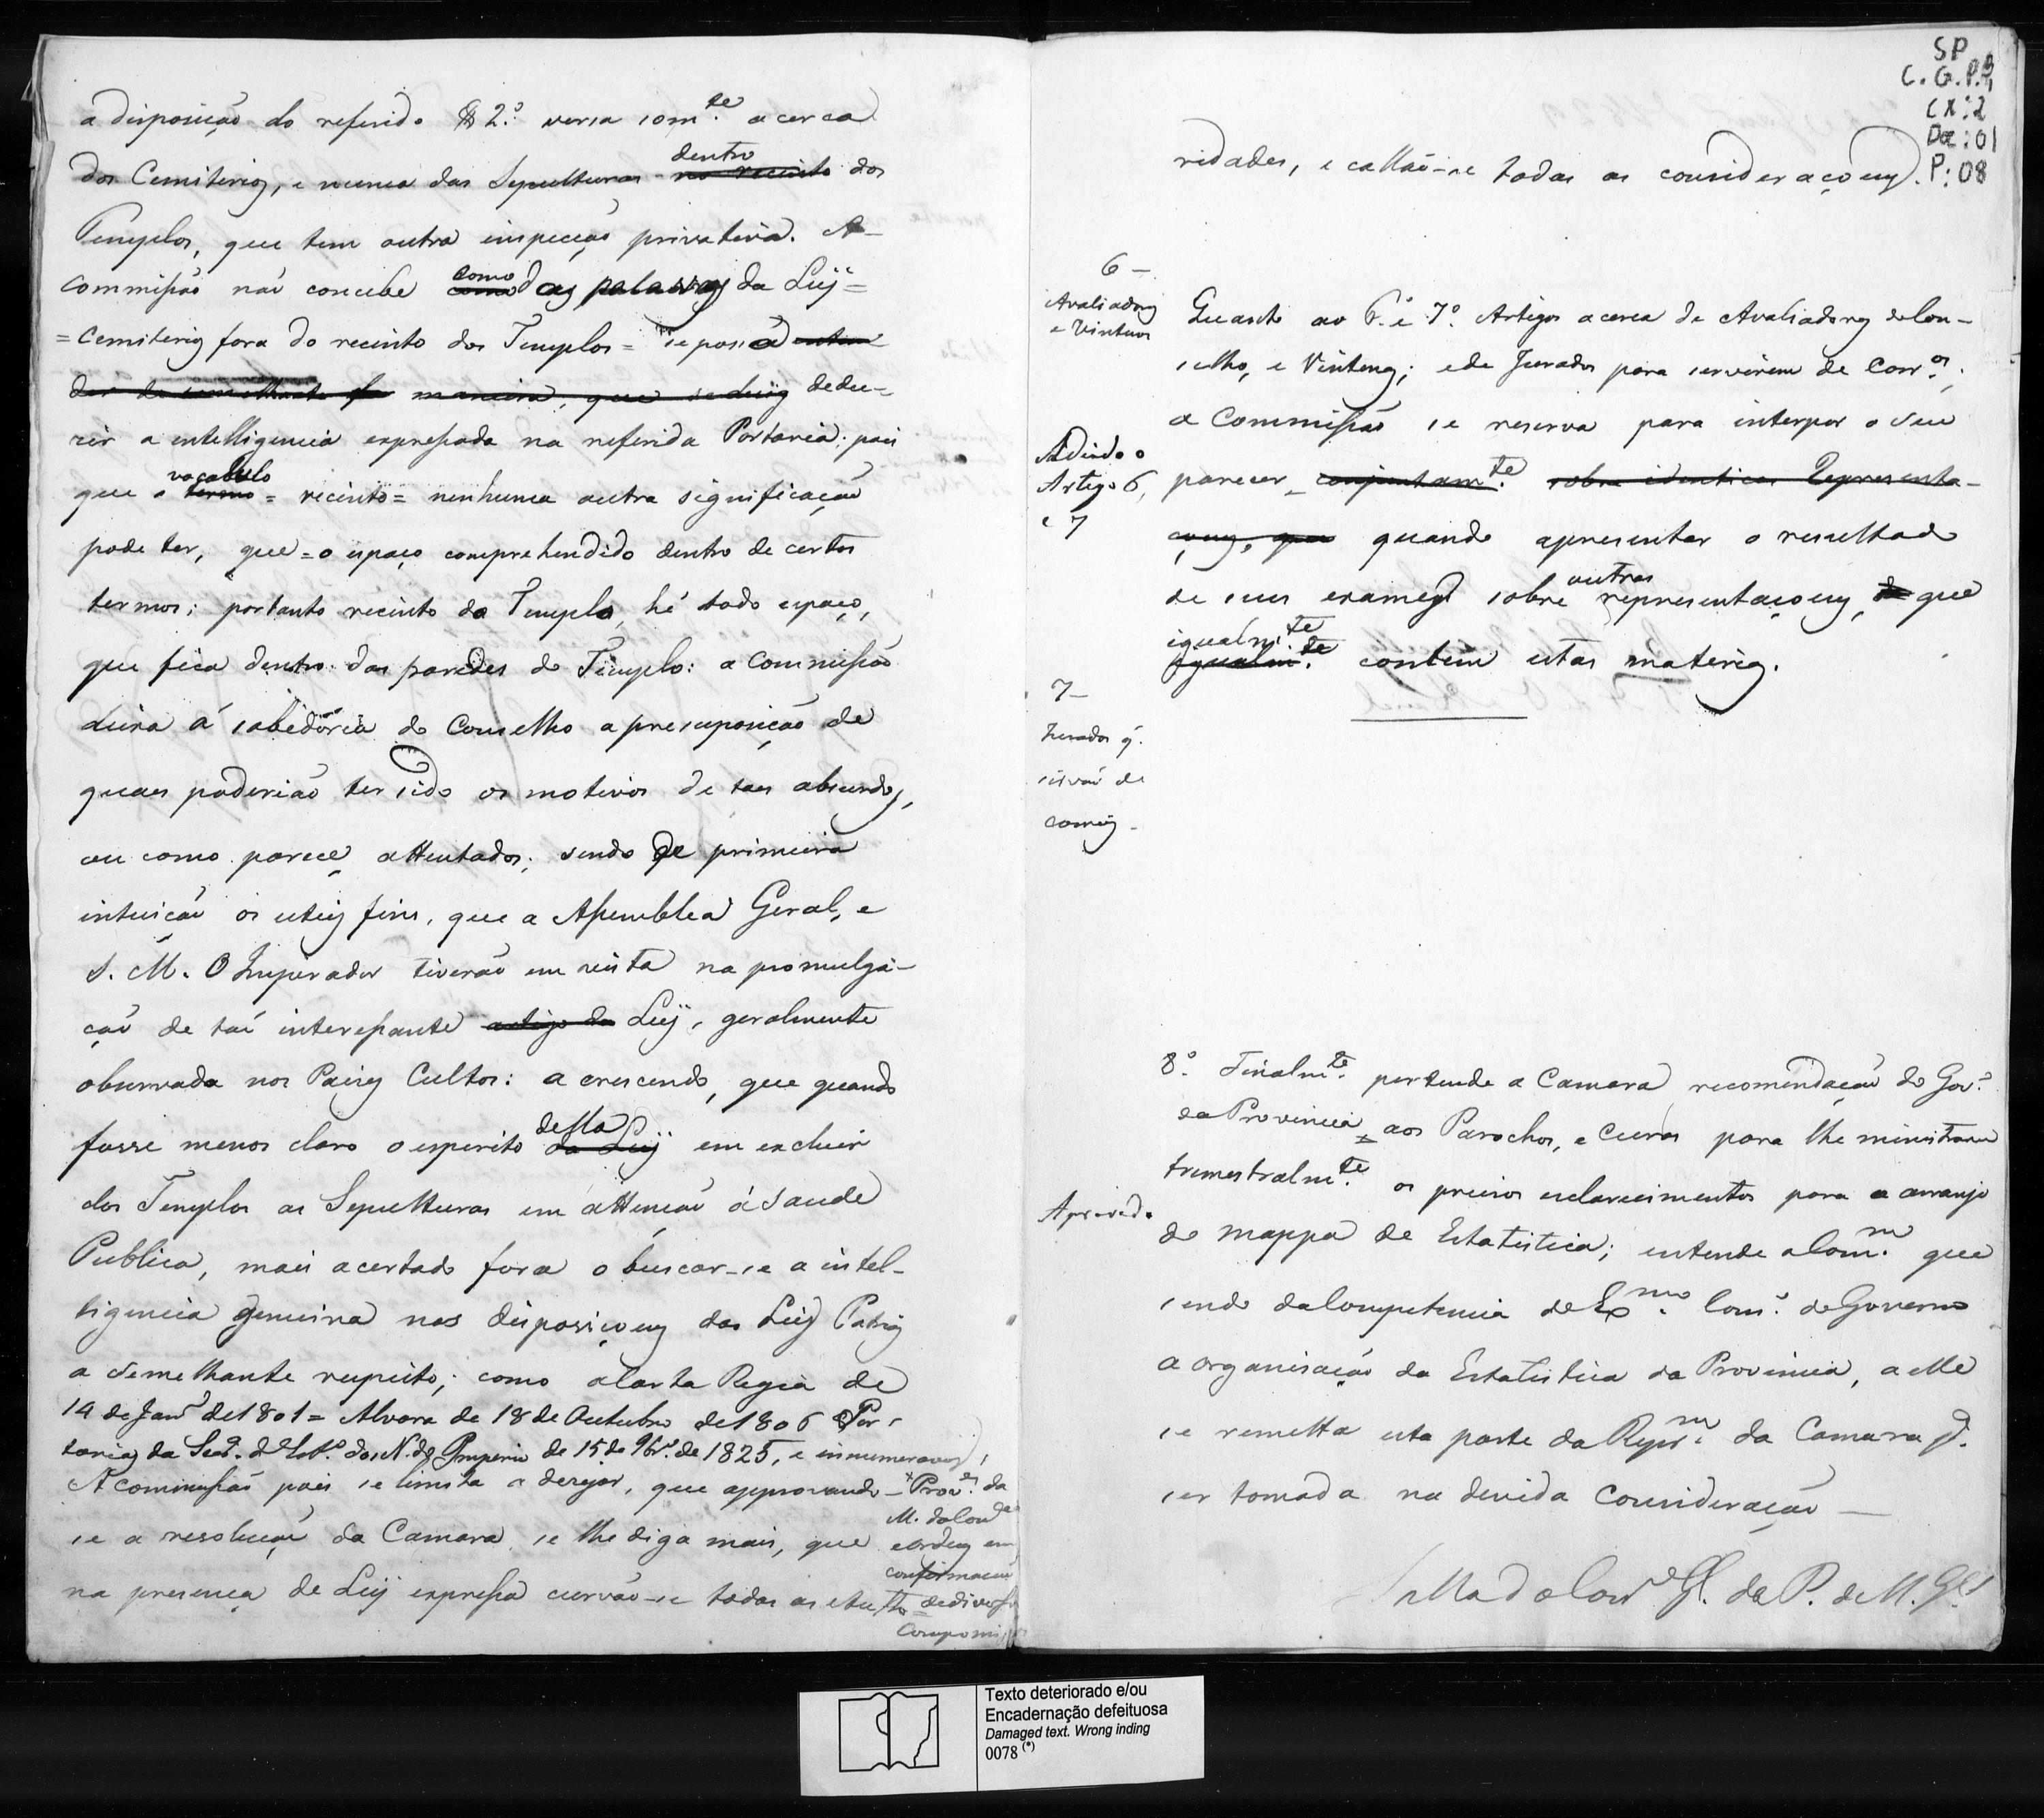 a disposição do referido § 2.º versa som.te acerca
dos Cemiterios, e nunca das Sepulturas dentro no recinto dos
Templos, que tem outra inspecção privativa. A
Commissão não concebe como como das palavras da Leij =
= Cemiterios fora do recinto dos Templos = se possa enten
der de semelhante maneira, que dedu-
zir a intelligencia expressada na referida Portaria; pois
que o vocabulo termo = recinto = nenhuma outra significação
pode ter, que = o espaço comprehendido dentro de certos
termos; portanto recinto do Templo, hé todo espaço,
que fica dentro das paredes do Templo: a Commissão
deixa á sabedoria do Conselho a presuposição de
quaes poderião ter sido os motivos de taes absurdos,
ou como parece, attentados; sendo de primeira
intuição os uteis fins, que a Assemblea Geral, e
S. M. O Imperador tiverão em vista na promulga-
ção de taõ interessante artigo da Leij, geralmente
observada nos Paizes Cultos: acrescendo, que quando
fosse menos claro o esperito desta da Leij em excluir
dos Templos as Sepulturas em attenção á saude
Publica, mais acertado fora o buscar-se a intel-
ligencia genuina nas disposiçoens das Leis Patrias
a semelhante respeito; como a Carta Regia de
14 de Jan.º de 1801 = Alvara de 18 de Outubro de 1806 e Por
tarias da Secr. d'Est.º dos N. do Imperio de 15 de 9br.º de 1825, e innumeraveis
A Commissão pois se limita a dezejar, que approvando-
se a resolução da Camara se lhe diga mais, que
na presença de Leij expressa curvão-se todas as autho
* Prov.es da
M. da Con.cia
e ordens em
confirmação
de diversos
Compromissos
SP
C. G. P.
CX: 2
Doc: 01
P: 08
ridades, e callão-se todas as consideraçoens.
6 –
Avaliadores
e Vintenas
Quanto ao 6.º e 7.º Artigos acerca de Avaliadores do Con-
selho, e Vintenas; e de Jurados para servirem de Corr.os;
a Commissão se reserva para interpor o seu
Adiado o
Artigo 6,
e 7
parecer conjuntam.te sobre identicas Representa-
çoens, que quando apresentar o resultado
de seus exames sobre outras representaçoens, de que
igualm.te igualm.te contem estas materias.
7 –
Jurados q.
sirvão de
8.º Finalm.te pertende a Camara recomendação do Gov.º
da Provincia aos Parochos, e Curas para lhe ministrarem
trimestralm.te os precisos esclarecimentos para o arranjo
Aprovado
do mappa de Estatistica; entende a Com.m que
sendo da Competencia do Ex.mo Cons.º do Governo
a organisação da Estatistica da Provincia, a elle
se remetta esta parte da Repr.m da Camara p.
ser tomada na devida Consideração –
Salla do Cons.º G.l da P. de M. G.s
Texto deteriorado e/ou
Encadernação defeituosa
Damaged text. Wrong inding
0078 (*)